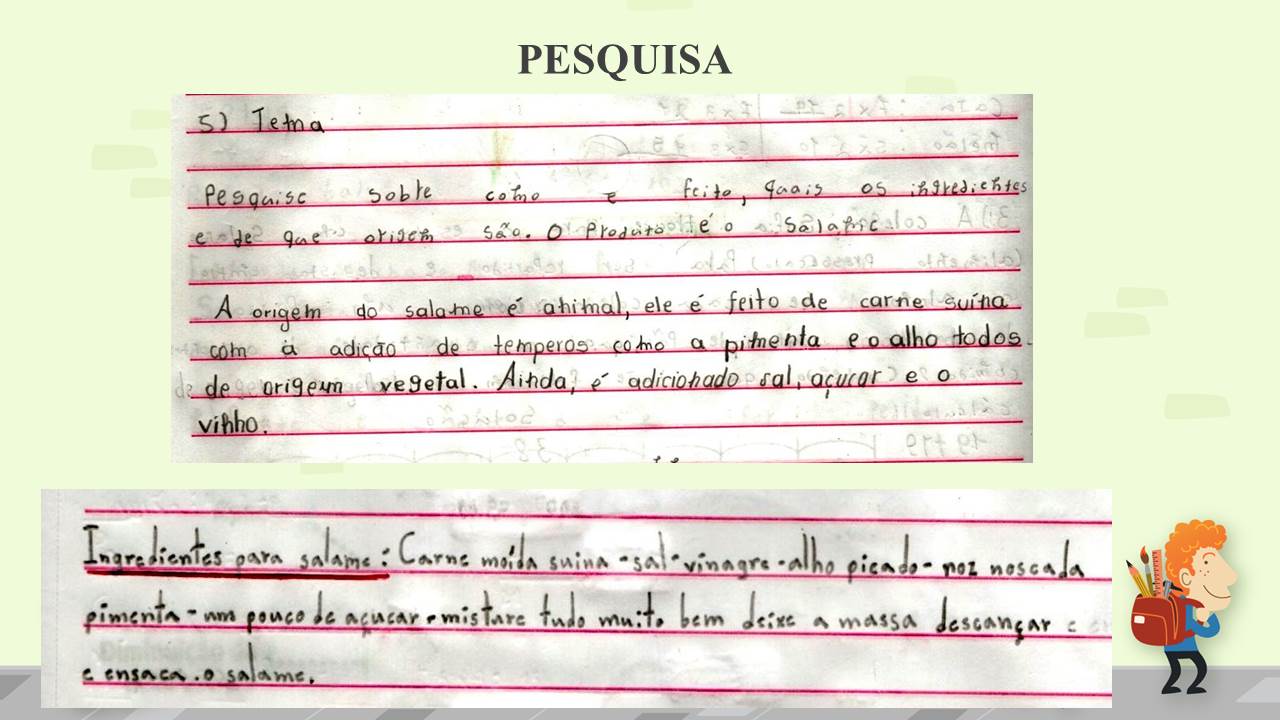 PESQUISA
5) Tema
Pesquise sobre como e feito, quais os ingredientes
e de que origem são. O Produto é o Salame.
A origem do salame é animal, ele é feito de carne suína
com a adição de temperos como a pimenta e o alho todos
de origem vegetal. Ainda, é adicionado sal, açucar e o
vinho.
Ingredientes para salame: Carne moída suina - sal - vinagre - alho picado - noz noscada
pimenta - um pouco de açucar - misture tudo muito bem deixe a massa descançar e
e ensaca. o salame.